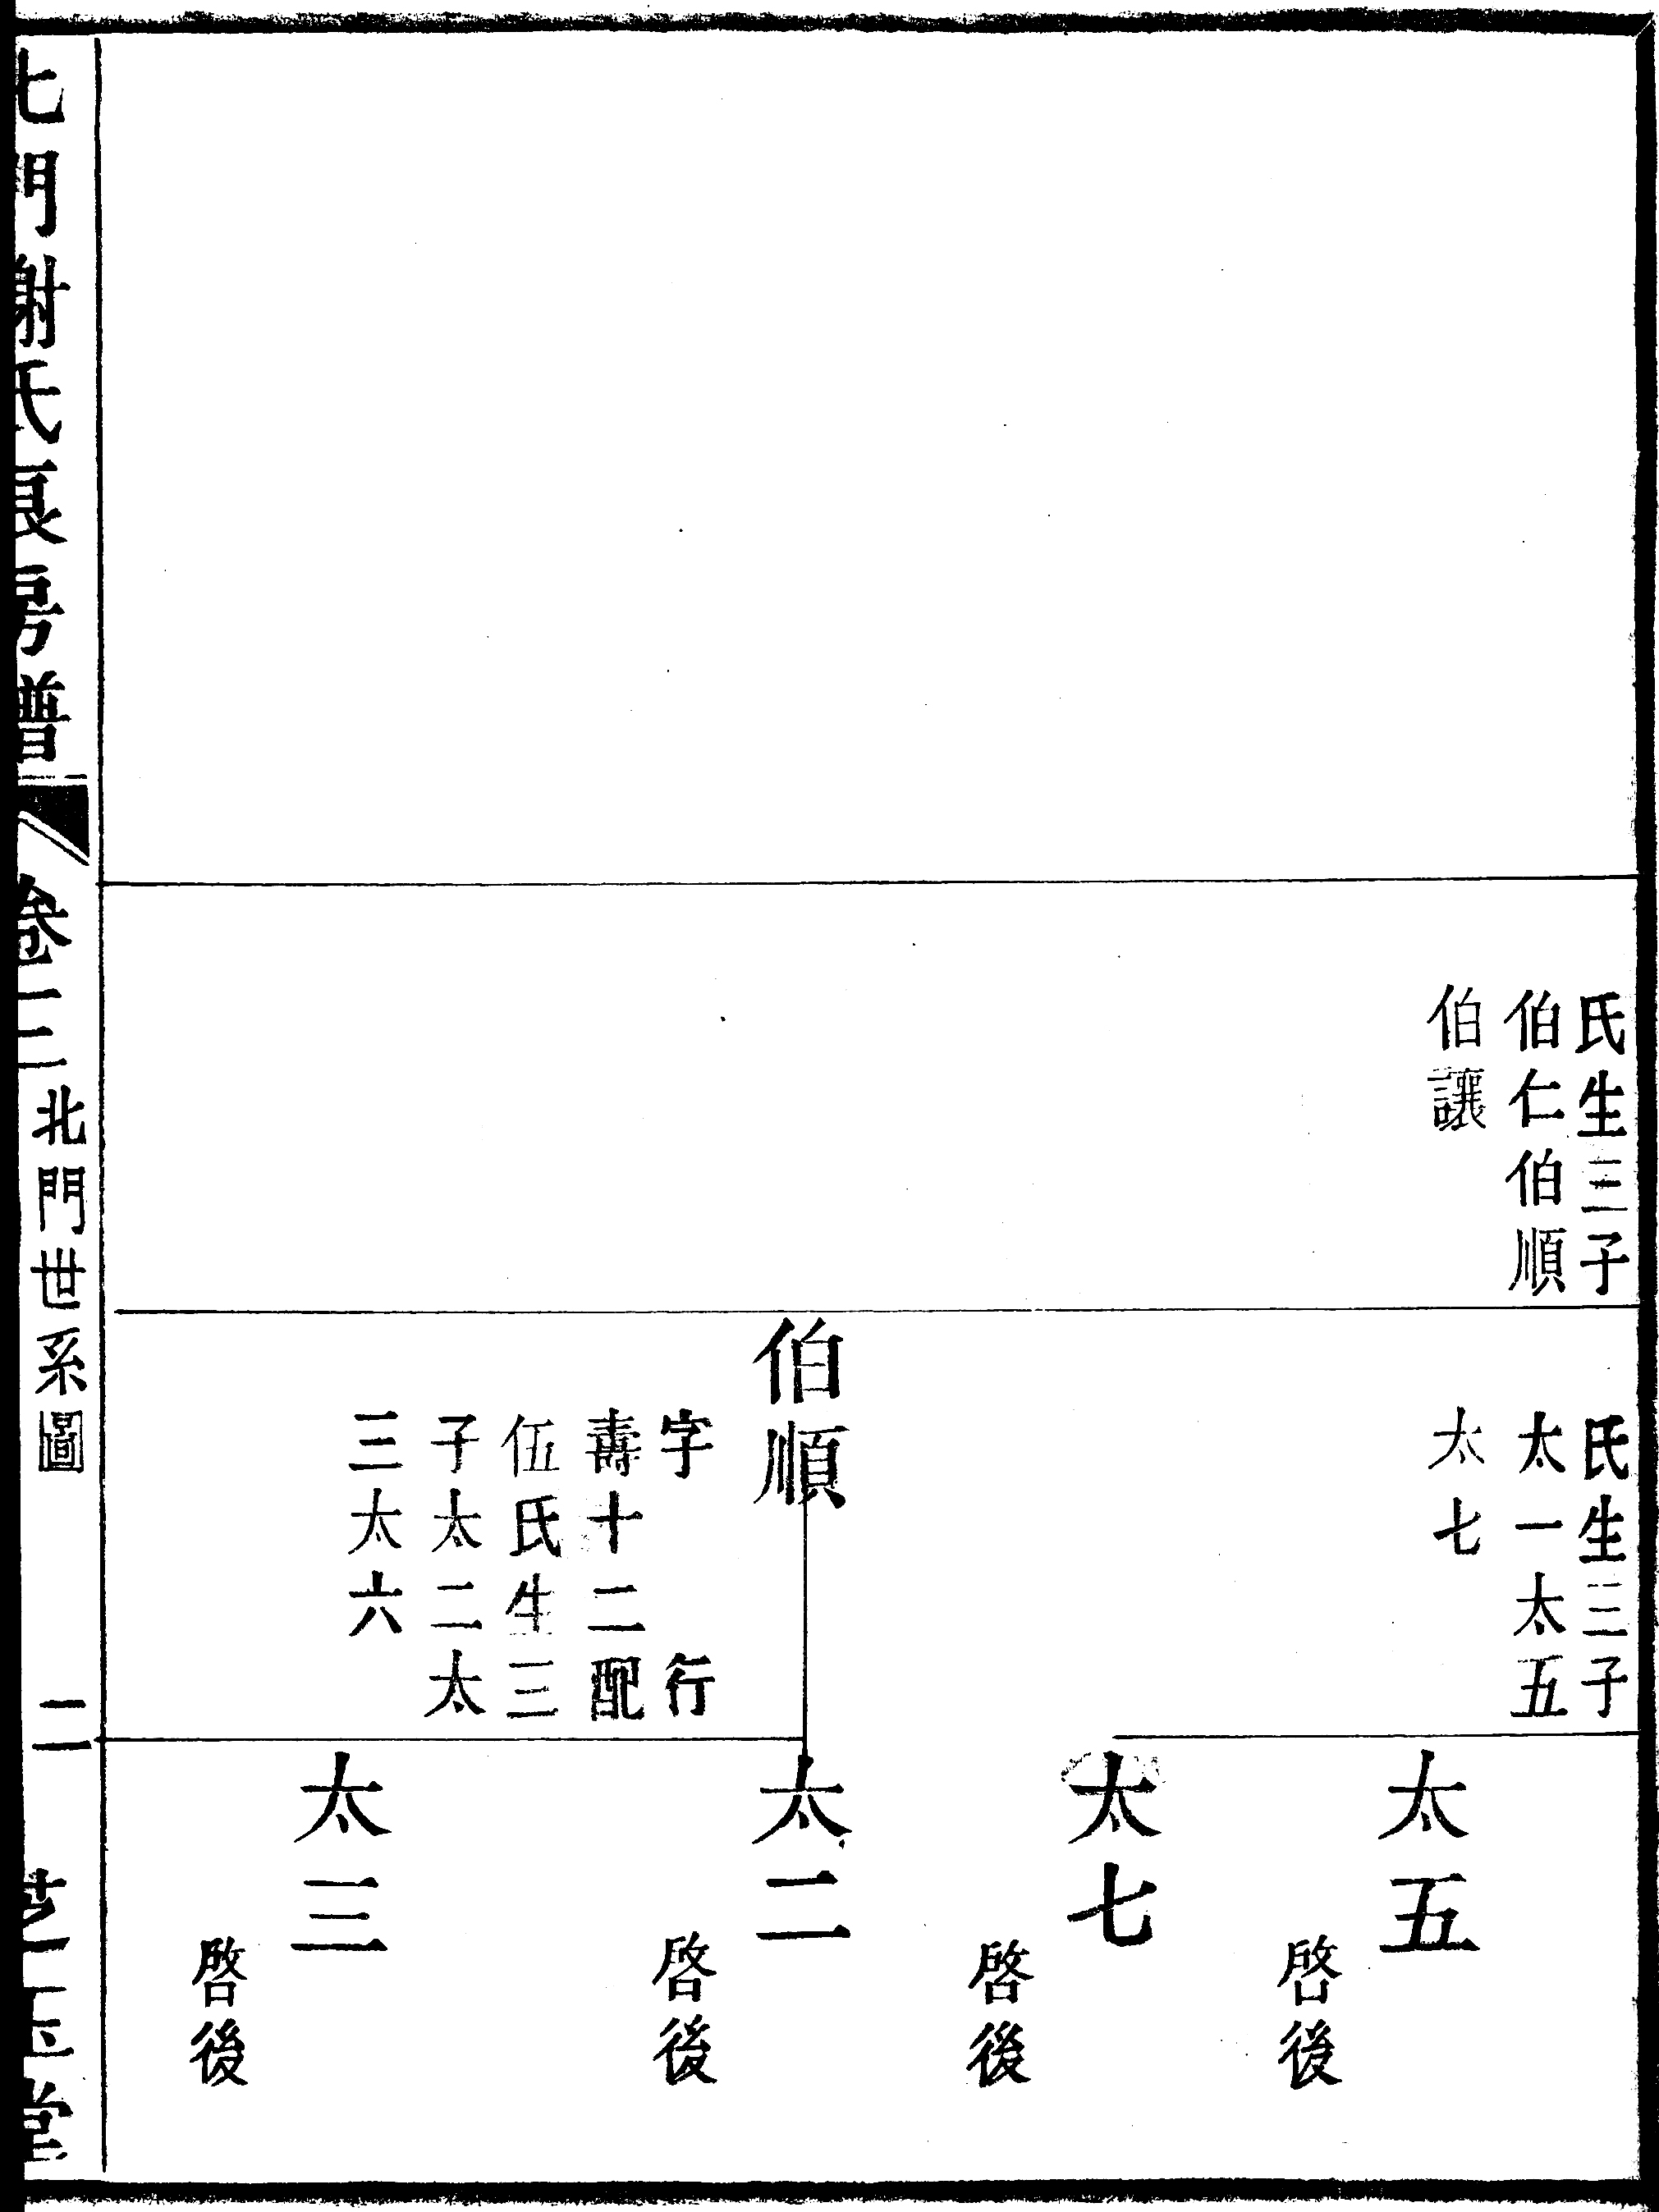 氏生三子
伯仁伯順
伯讓
氏生三子
太一太五
太七
伯順
字　行
壽十二配
伍氏生三
子太二太
三太六
太五
啓後
太七
啓後
太二
啓後
太三
啓後
北門謝氏房譜
卷二
北門世系圖
二
芝玉堂